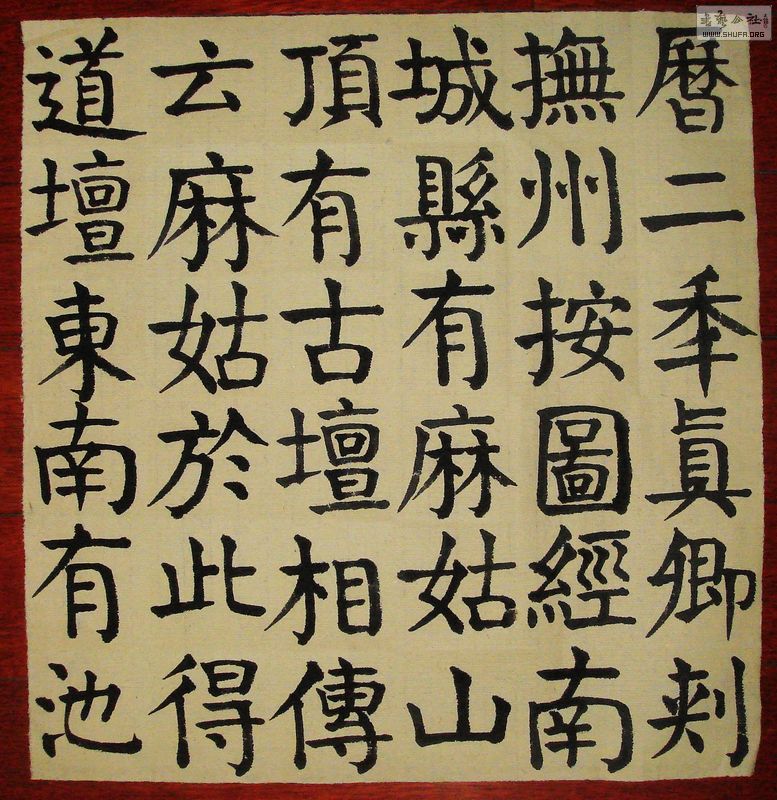 曆二秊眞卿刾
撫州按圖經南
城縣有麻姑山
頂有古壇相傳
云麻姑於此得
道壇東南有池
WWW.SHUFA.ORG